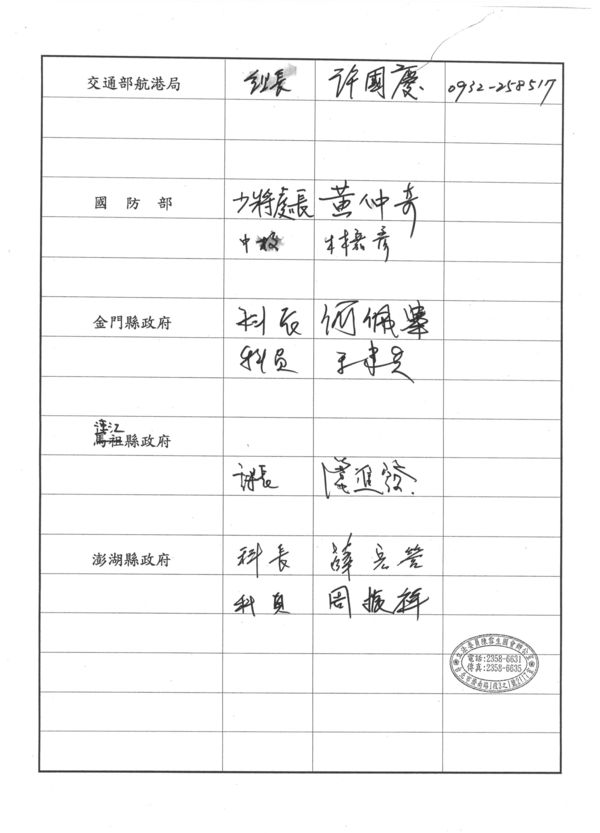 交通部航港局 組長 許國慶 0932-258517
國防部 少將處長 黃仲奇
中校 林嘉彥
金門縣政府 科長 何佩舉
科員
連江
馬祖縣政府
課長 進發
澎湖縣政府 科長 薛宏營
科員 周振祥
立法委員陳雪生國會辦公室
電話:2358-6631
傳真:2358-6635